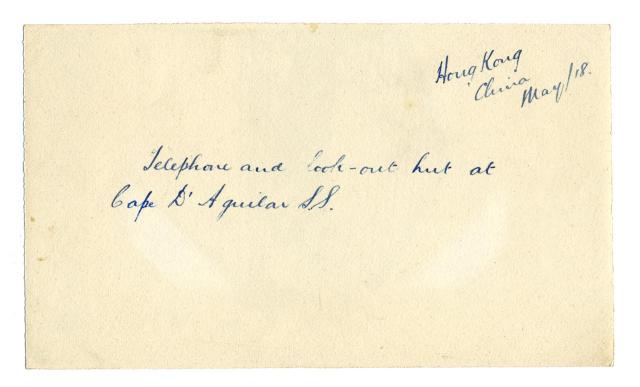 Hong Kong
China
May/18.
Telephone and look-out hut at
Cape D'Aguilar S.S.